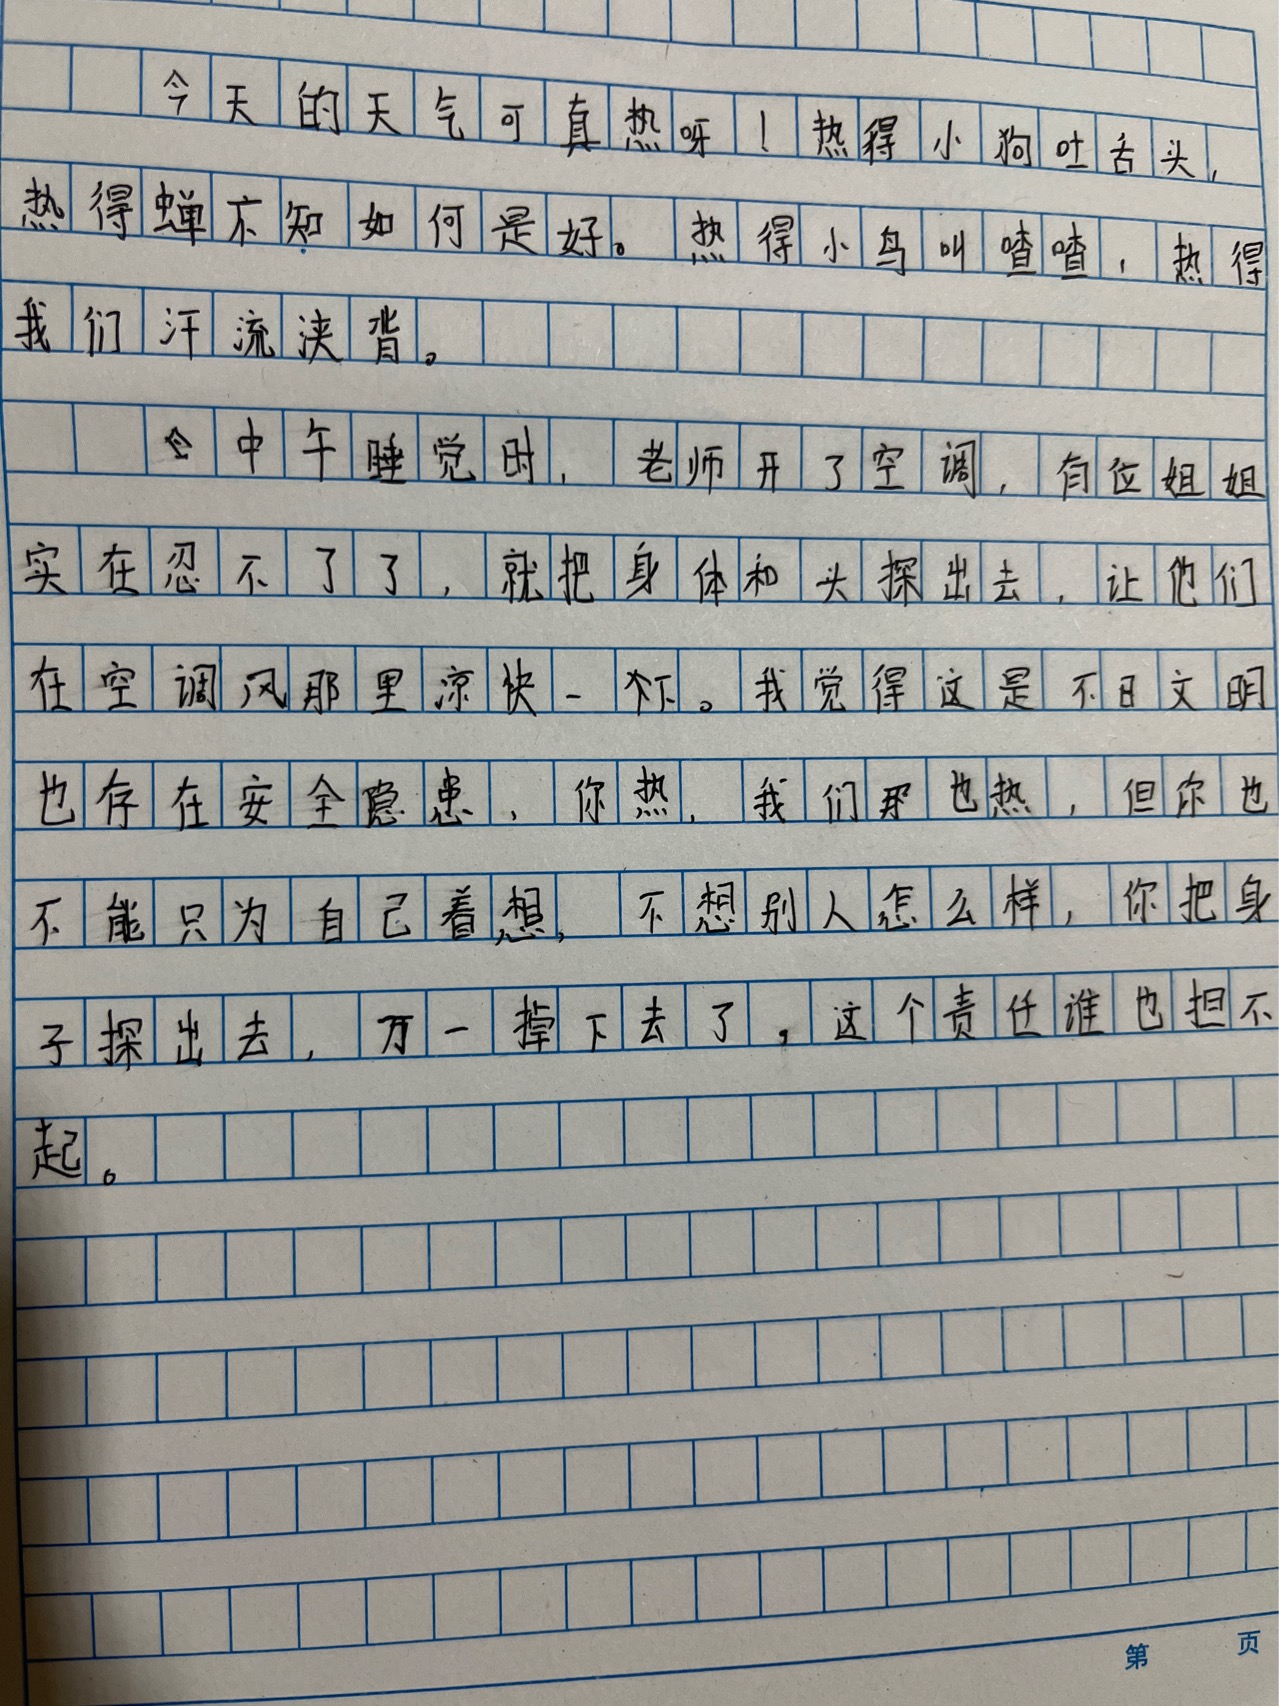 今天的天气可真热呀！热得小狗吐舌头，
热得蝉不知如何是好。热得小鸟叫喳喳，热得
我们汗流浃背。
中午睡觉时，老师开了空调，有位姐姐
实在忍不了了，就把身体和头探出去，让他们
在空调风那里凉快一下。我觉得这是不文明
也存在安全隐患，你热，我们也热，但你也
不能只为自己着想，不想别人怎么样，你把身
子探出去，万一掉下去了，这个责任谁也担不
起。
第 页